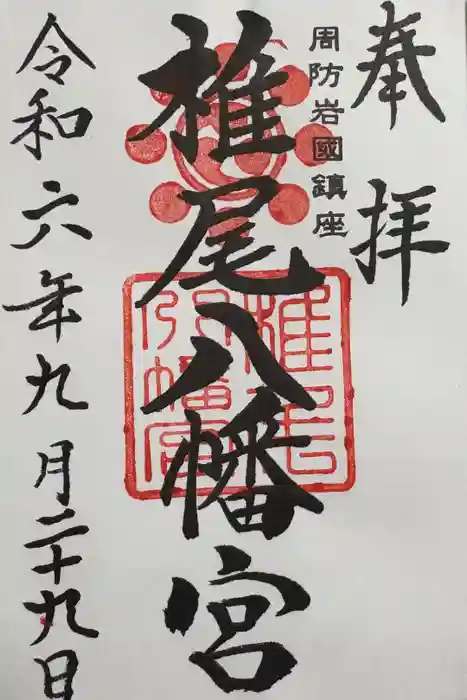 奉拝
周防岩國鎮座
椎尾八幡宮
椎尾
八幡宮
令和六年九月二十九日